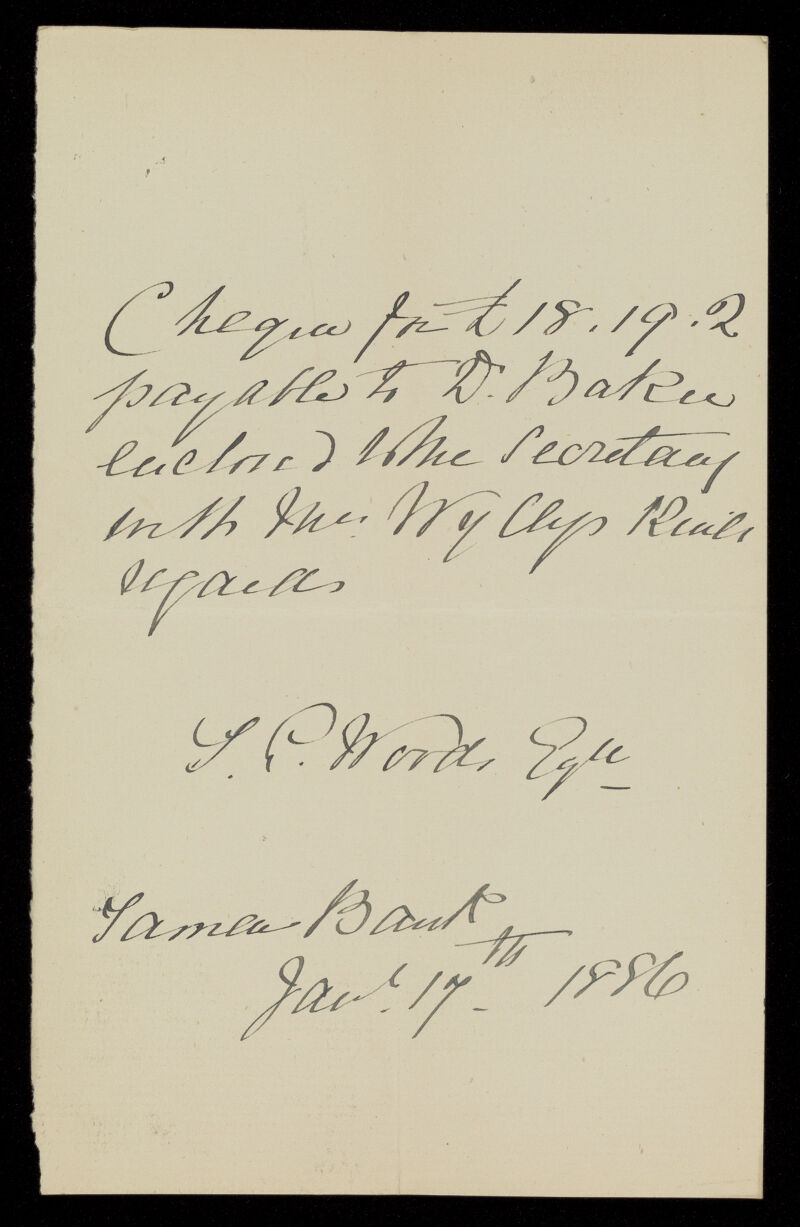 Cheque for £18.19.2
payable to D. Baker
enclosed to the Secretary
with Mrs. Wyllys Kind
regards
S. C. Woods Esqre
Bank
Jany. 17th 1886